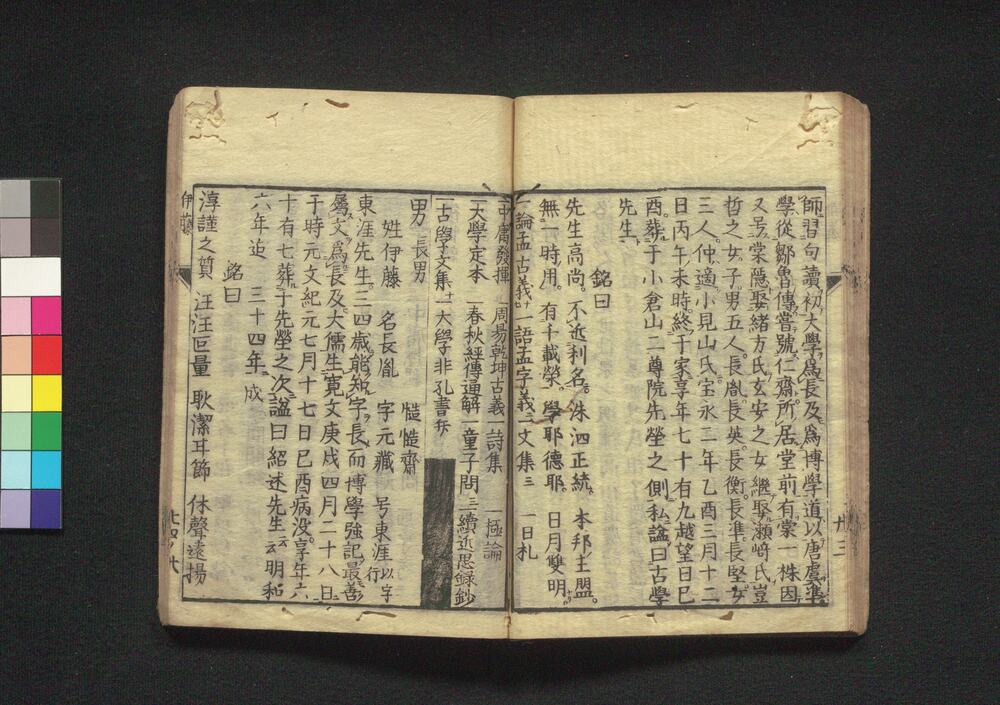 師習句讀初大學爲長及爲博學道以唐虞準
學從鄒魯傳嘗號仁齋所居堂前有棠一株因
又号棠隱娶緒方氏玄安之女継娶瀬﨑氏豈
哲之女子男五人長胤長英長衡長準長堅女
三人仲適小見山氏宝永二年乙酉三月十二
日丙午未時終于家享年七十有九越望日己
酉葬于小倉山二尊院先塋之側私諡曰古學
先生
銘曰
先生高尚不近利名洙泗正統本邦主盟
無一時用有千載榮學耶德耶日月雙明
一論孟古義 一語孟字義二 文集三 一日札
一中庸發揮 一周易乾坤古義 一詩集 一極論
一大學定本 一春秋經傳通解 一童子問三 續近思録鈔
一古學文集 一大學非孔書弁
男 長男 慥慥齋
姓伊藤 名長胤 字元藏 号東涯 以字行
東涯先生三四歳能知字長而博學強記最善
屬文爲長及大儒生寛文庚戌四月二十八日
于時元文紀元七月十七日己酉病没享年六
十有七葬于先塋之次諡曰紹述先生云明和
六年迨 三十四年成
銘曰
淳謹之質 汪汪叵量 耿潔耳節 休聲遠揚
伊藤
廿三